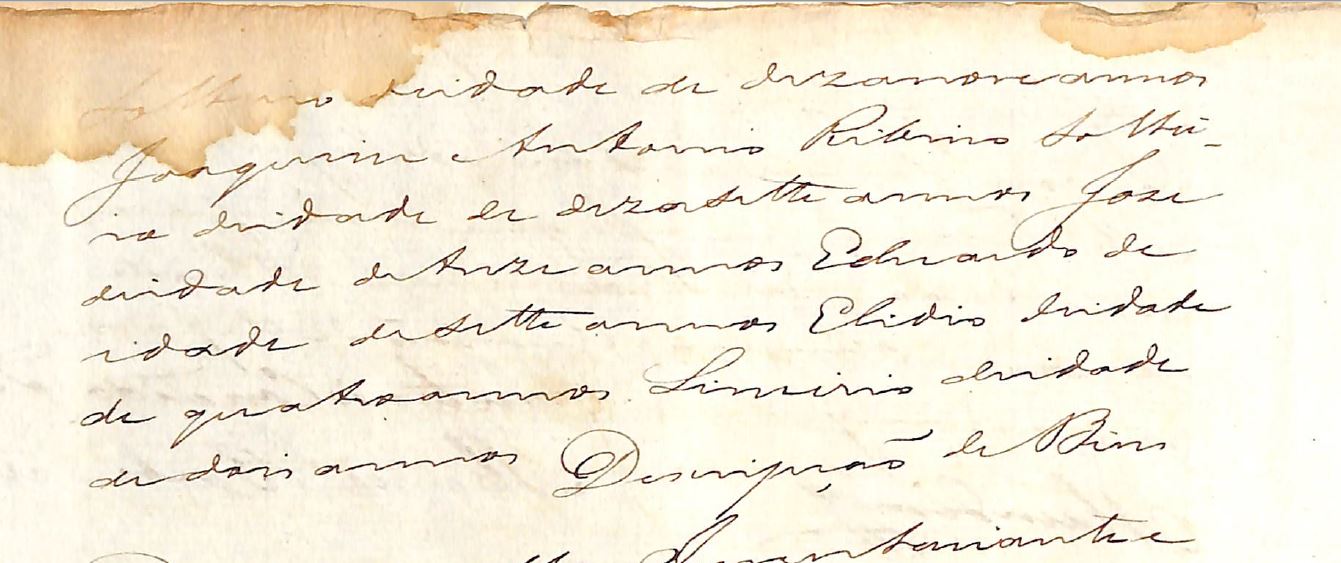 solteiro deidade de dizanove annos
Joaquim Antonio Ribeiro soltei-
ro deidade de dizasette annos Jose
deidade de treze annos Eduardo de
idade de sette annos Elidio deidade
de quatro annos Limirio deidade
de dois annos Descripção de Bens
Inventariante e